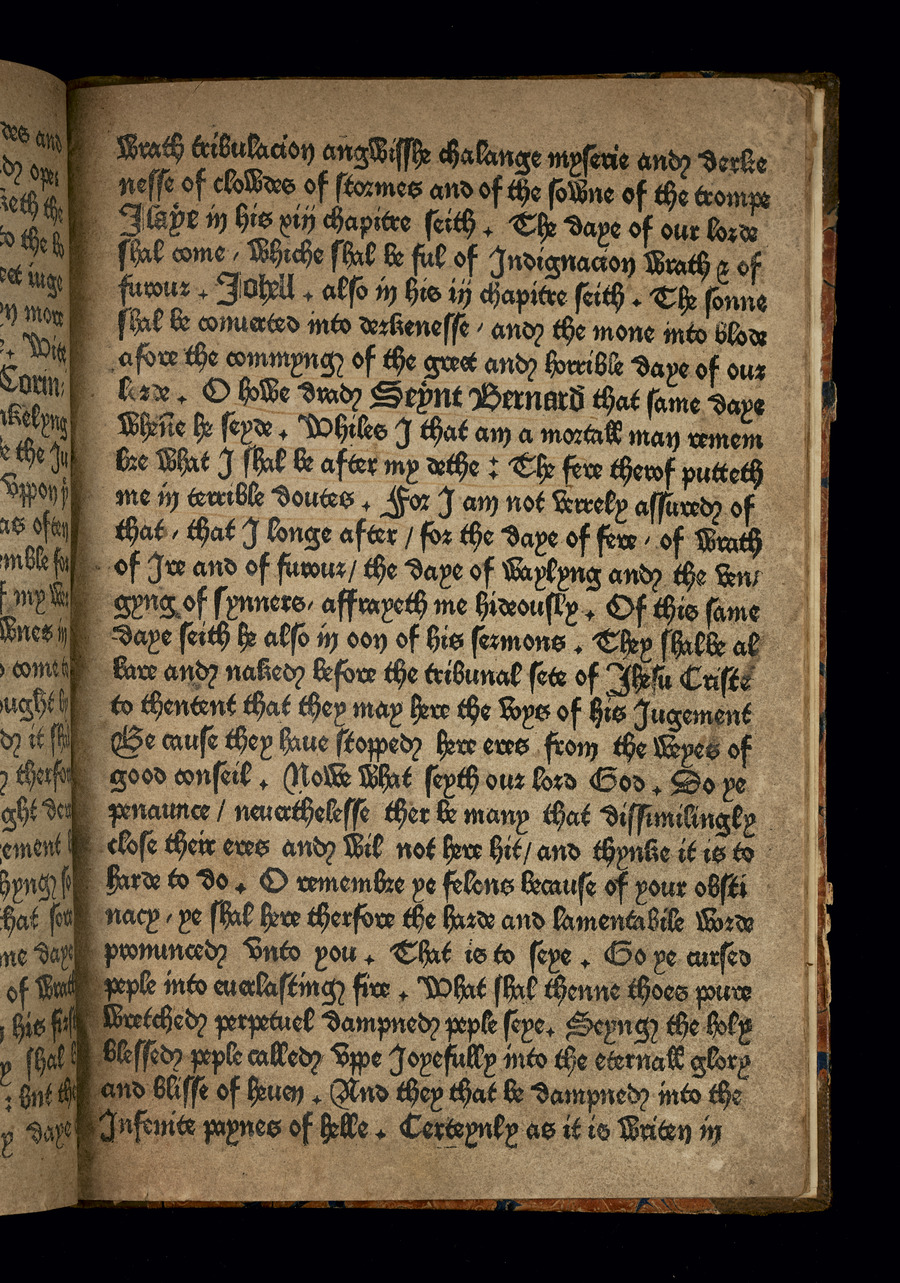 des and
dy open
keth the
to the
iuge
y more
. Wite
Corin/
nkelyng
e the Iu
Vppon y
as often
emble for
f my
wnes in
come
ought
dy it
therfor
ght
ement
hyng
hat
me daye
of wrath
his first
y shal
: but the
y daye
wrath tribulacion angwisshe chalange myserie and derke
nesse of clowdes of stormes and of the sowne of the trompe
Isaye in his xiij chapitre seith . The daye of our lorde
shal come , whiche shal be ful of Indignacion wrath & of
furour . Johell . also in his iij chapitre seith . The sonne
shal be conuerted into derkenesse , and the mone into blode
afore the commyng of the greet and horrible daye of our
lorde . O howe drad Seynt Bernard that same daye
wheñe he seyde . Whiles I that am a mortall man remem
bre what I shal be after my dethe : The fere therof putteth
me in terrible doutes . For I am not verrely assured of
that , that I longe after / for the daye of fere , of wrath
of Ire and of furour / the daye of waylyng and the ven/
gyng of synners , affrayeth me hideously . Of this same
daye seith he also in oon of his sermons . They shalbe al
bare and naked before the tribunal sete of Jhesu Criste
to thentent that they may here the voys of his Jugement
Be cause they haue stopped here eres from the weyes of
good conseil . Nowe what seyth our lord God . Do ye
penaunce / neuerthelesse ther be many that dissimilingly
close their eres and wil not here hit / and thynke it is to
harde to do . O remembre ye felons because of your obsti
nacy , ye shal here therfore the harde and lamentabile worde
pronunced vnto you . That is to seye . Go ye cursed
peple into euerlasting fire . What shal thenne thoes poure
wretched perpetuel dampned peple seye . Seyng the holy
blessed peple called vppe Joyefully into the eternall glory
and blisse of heuen . And they that be dampned into the
Infenite paynes of helle . Certeynly as it is writen in